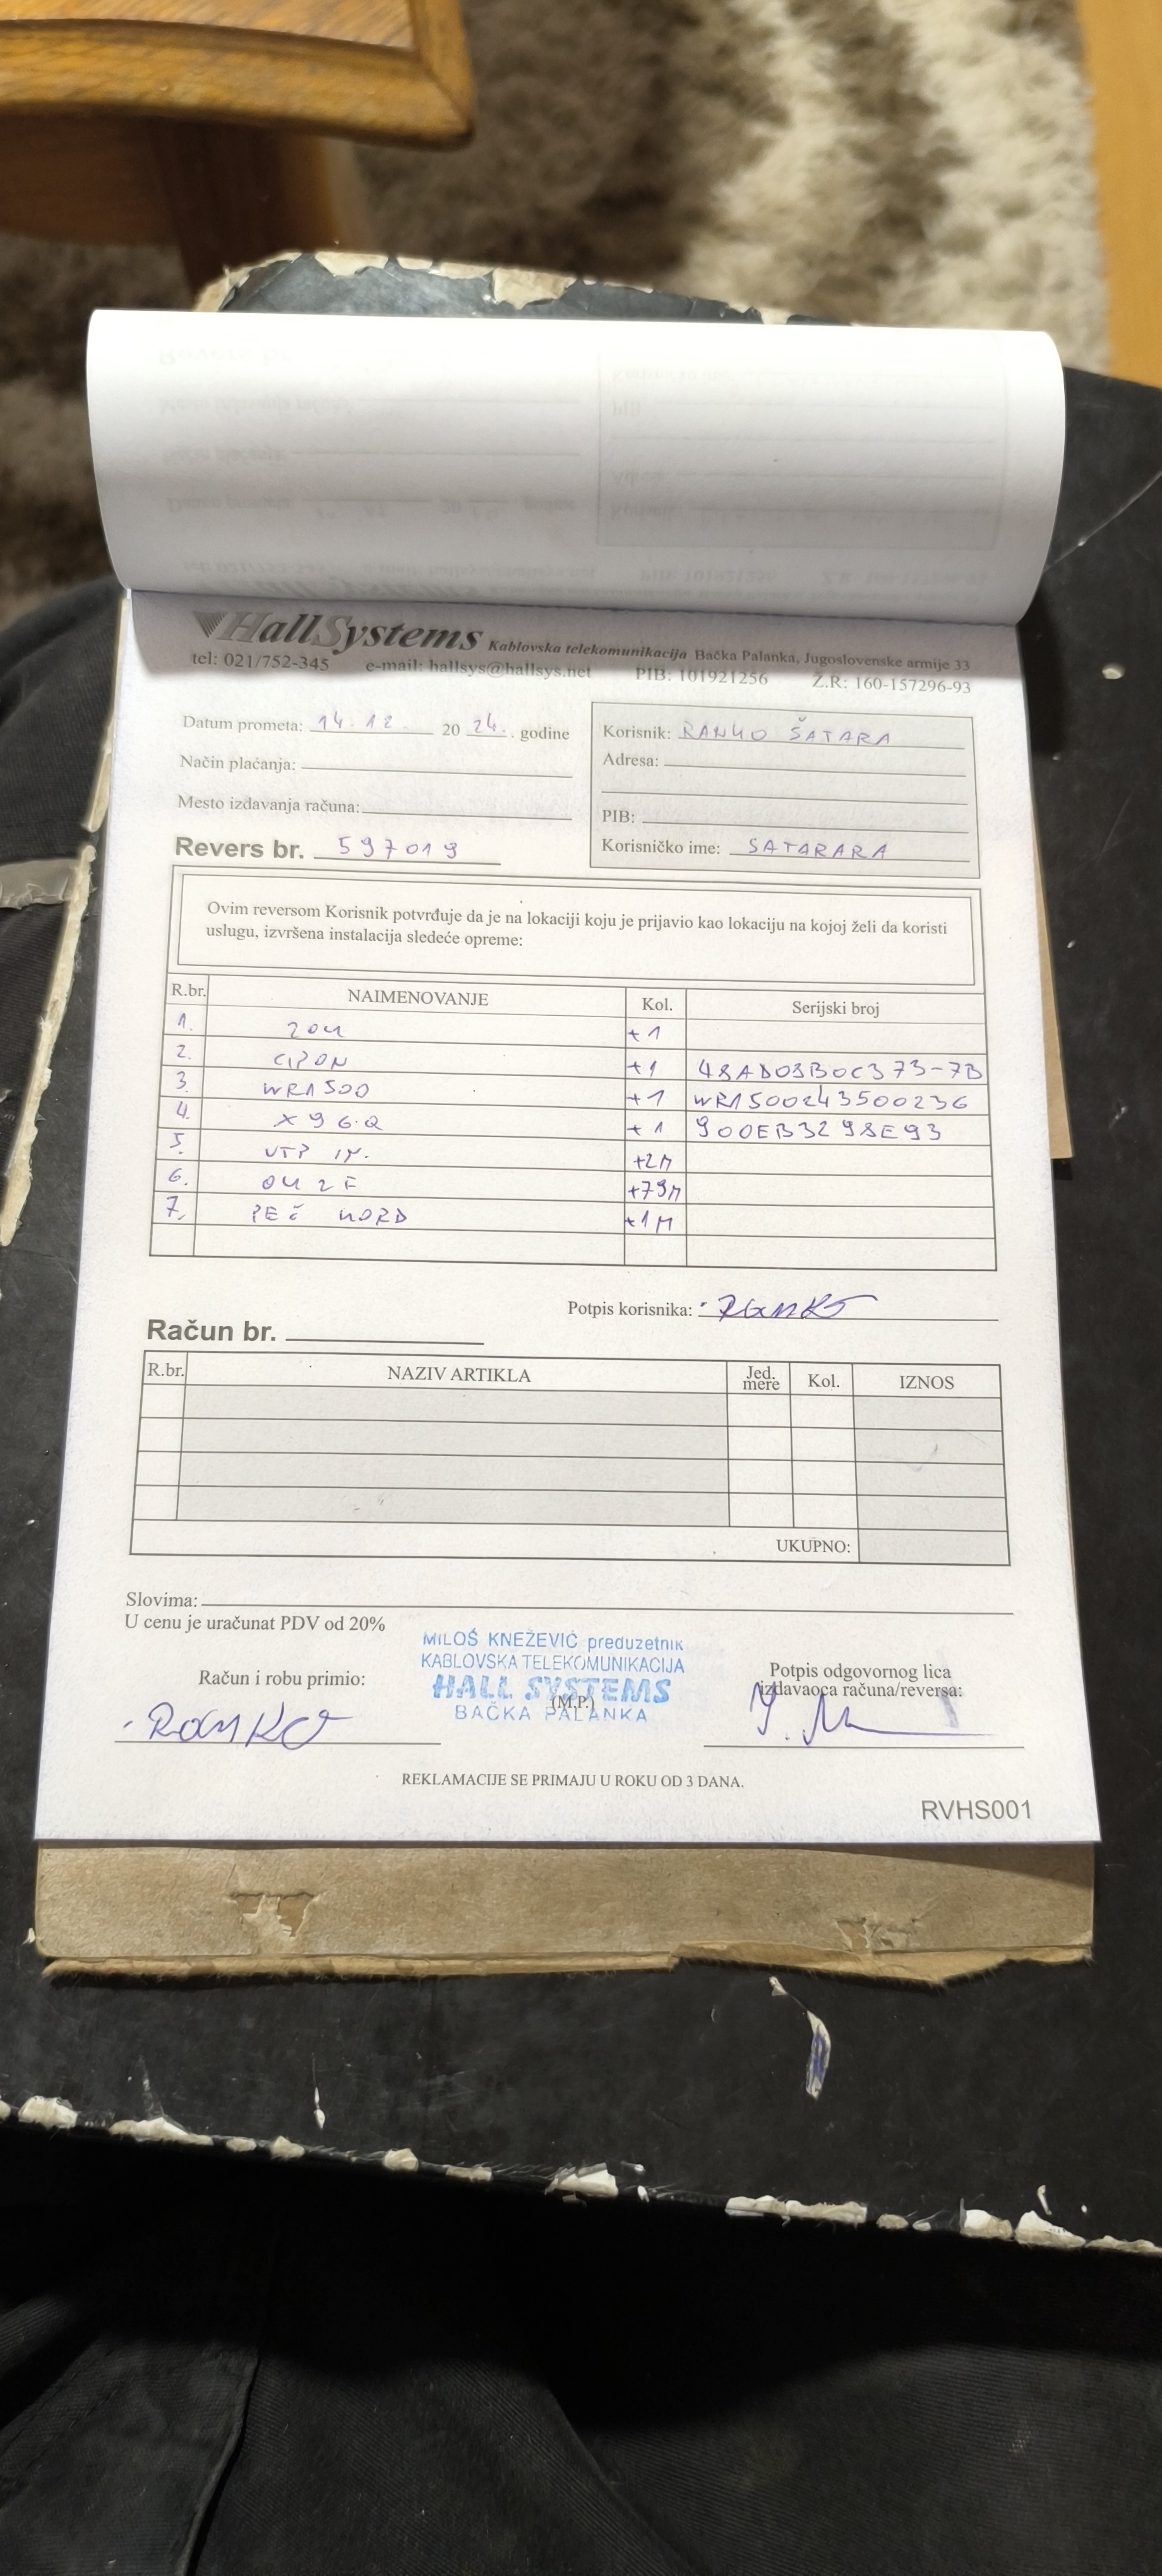 HallSystems Kablovska telekomunikacija Bačka Palanka, Jugoslovenske armije 33
tel: 021/752-345 e-mail: hallsys@hallsys.net PIB: 101921256 Ž.R: 160-157296-93
Datum prometa: 14.12. 20 24. godine
Način plaćanja:
Mesto izdavanja računa:
Revers br. 597019
Korisnik: RANKO ŠATARA
Adresa:
PIB:
Korisničko ime: SATARARA
Ovim reversom Korisnik potvrđuje da je na lokaciji koju je prijavio kao lokaciju na kojoj želi da koristi
uslugu, izvršena instalacija sledeće opreme:
R.br. NAIMENOVANJE Kol. Serijski broj
1. ZOK +1
2. GPON +1 48AD03B0C373-7B
3. WR1500 +1 WR1500243500236
4. X96Q +1 900EB3298E93
5. UTP +2M
6. OK 2F +79M
7. PEČ KORD +1M
Potpis korisnika: Ranko
Račun br.
R.br. NAZIV ARTIKLA Jed. mere Kol. IZNOS
UKUPNO:
Slovima:
U cenu je uračunat PDV od 20%
Račun i robu primio:
Ranko
MILOŠ KNEŽEVIĆ preduzetnik
KABLOVSKA TELEKOMUNIKACIJA
HALL SYSTEMS
(M.P.)
BAČKA PALANKA
Potpis odgovornog lica
izdavaoca računa/reversa:
REKLAMACIJE SE PRIMAJU U ROKU OD 3 DANA.
RVHS001